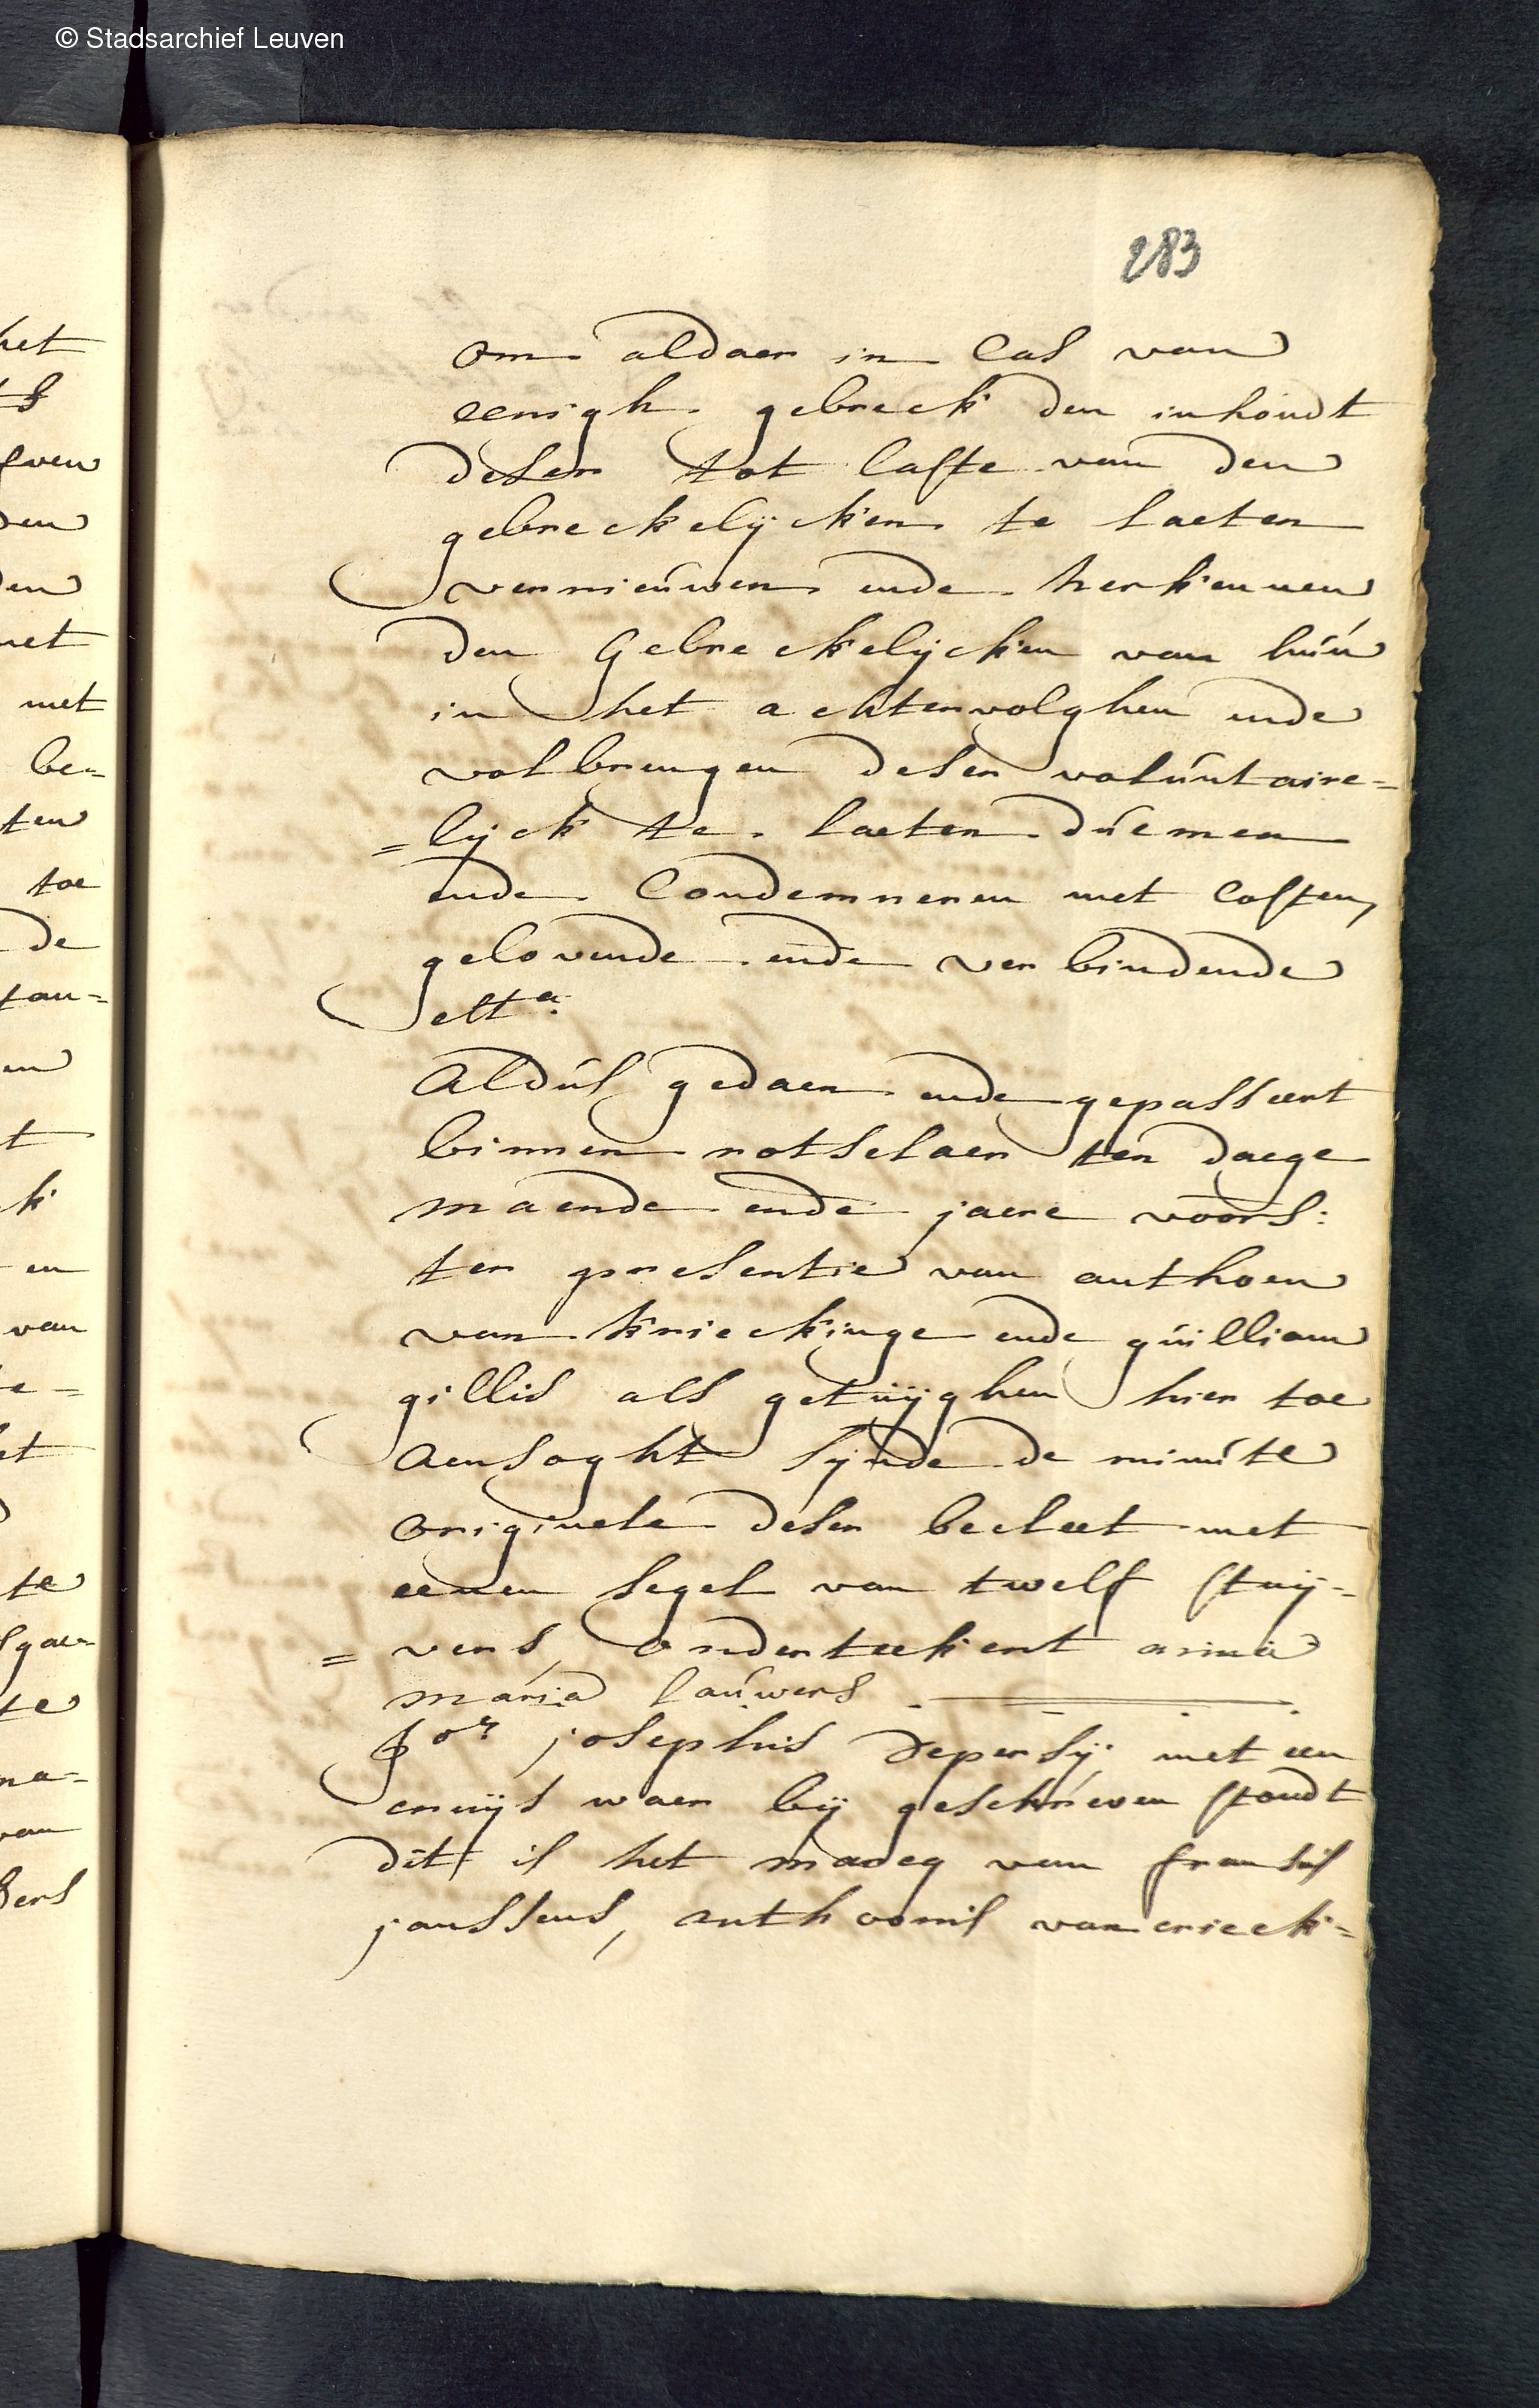 © Stadsarchief Leuven
283
om aldaer in Cas van
eenigh gebreck den inhoudt
deser tot laste van den
gebreckelijcken te laeten
vernieuwen ende herkennen
den Gebreckelijcken van hun
in het achtervolghen ende
volbrengen deser voluntaire=
=lijck te laeten duemen
ende Condemneren met Costen,
gelovende ende verbindende
ett.a
Aldus gedaen ende gepasseert
binnen rotselaer ten daege
maende ende jaere voors:
ter presentie van anthoen
van krieckinge ende guilliam
gillis als getuijghen hier toe
aensoght sijnde de minute
originele deser becleet met
eenen segel van twelf stuij=
=vers, onderteekent anna
maria lauwers
josephus depersij met een
cruijs waer bij geschreven stondt
dit is het marcq van fransus
janssens, anthoonis van crieck=
het
ven
den
den
met
met
be=
ten
toe
de
tan=
en
t
k
en
van
e=
et
te
te
na=
van
sers